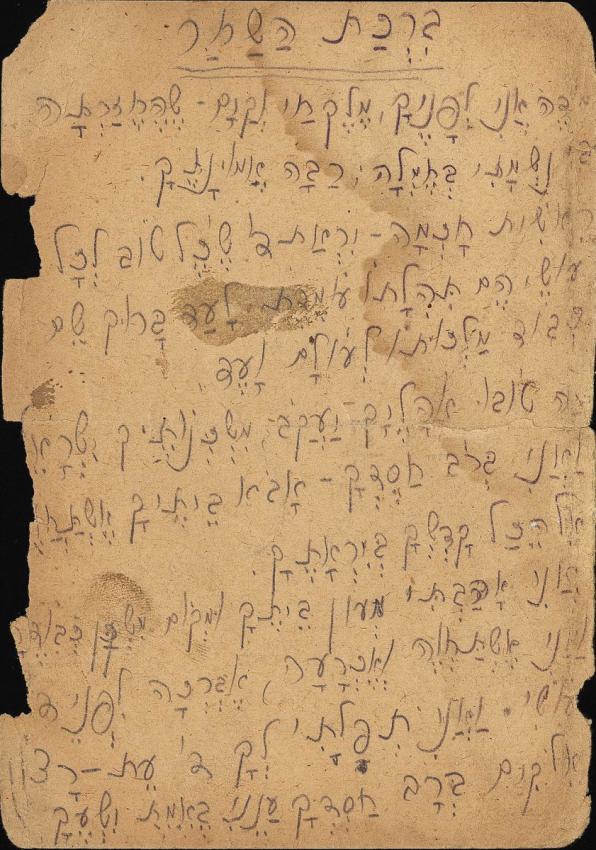 ברכת השחר
אני לפניק, מלק חי וקים - שההזרתה
נשמתי בחמלה, רבה אמוינתק.
ראשית חכמה - יראת ד' שכל טוב לכל
עושיהם תהלתו עומדת לעד בראוק שם
כבוד מלכותו לעולם ועד,
מה טובו אהליק יעקב, משכנותיק
ואני ברב חסדק - אבוא ביתיק
אל היכל קדשק ביראתק.
ואני אהבתי מעון ביתק ומקום משכן
ואני אשתחוה ואכרעה, אברכה לפני ד
עושי. ואני תפלתי לק ד' עת-
אלקים ברב חסדק ענני באמת ישעק